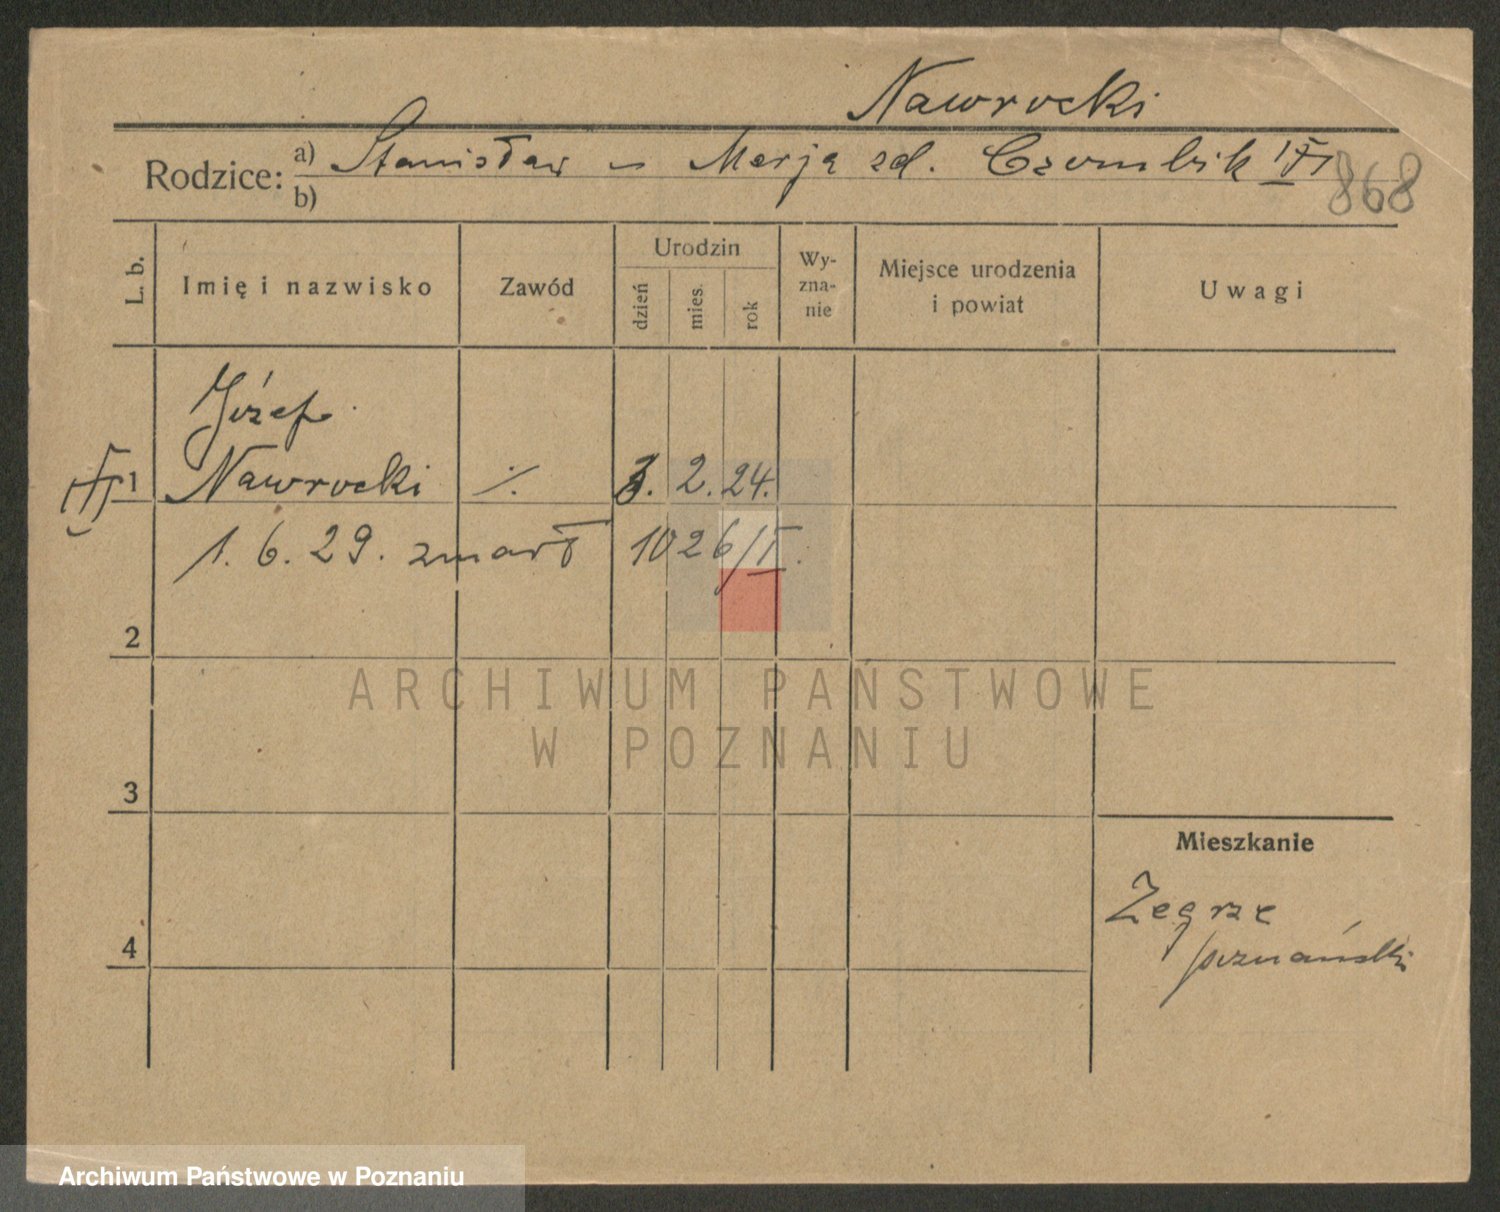 Nawrocki
Rodzice: a) Stanisław u Marja zd.
b)
868
L. b.
Imię i nazwisko
Zawód
Urodzin
dzień
mies.
rok
Wy-
zna-
nie
Miejsce urodzenia
i powiat
Uwagi
Józef
1 Nawrocki ./. 3. 2. 24.
1. 6. 29. zmarł 1026/II.
2
3
4
Mieszkanie
Zegrze
poznański
ARCHIWUM PAŃSTWOWE
W POZNANIU
Archiwum Państwowe w Poznaniu